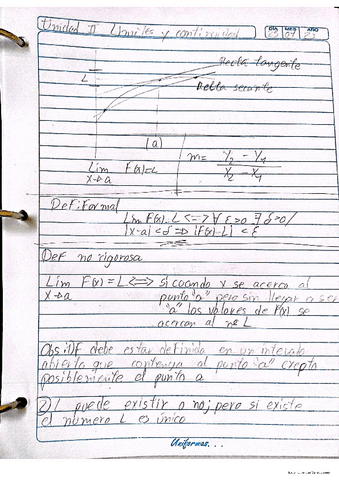 Unidad II Limites y continuidad
DIA MES AÑO
Recta tangente
L
Recta secante
(a)
Lim F(x)=L
x→a
m= Y2 - Y1
X2 - X1
Def: Formal
Lim F(x)=L <=> ∀ ε>0 ∃ d>0/
|x-a|<d => |F(x)-L| < ε
Def no rigorosa
Lim F(x) = L <=> si cuando x se acerca al
x→a
punto "a" pero sin llegar a ser
"a" los valores de F(x) se
acercan al nº L
Obs: 1) F debe estar definida en un intervalo
abierto que contenga al punto "a" excepto
posiblemente el punto a
2) L puede existir o no; pero si existe
el numero L es único
Uniformas...